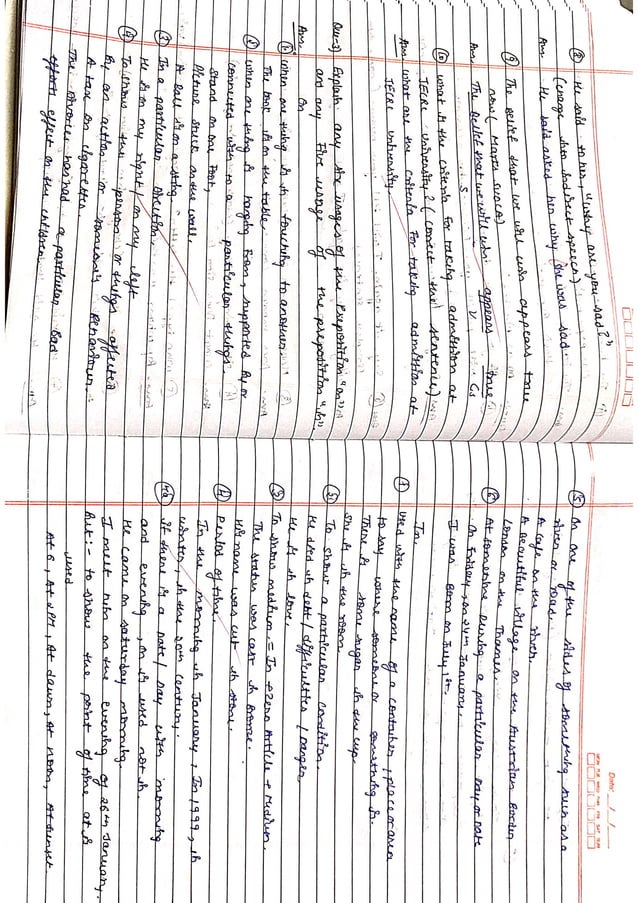 ⑧ He said to her, "why are you sad?"
(change into indirect speech)
Ans. He said asked her why she was sad.
⑨ The belief that we will win appears true
now (Mark SVOCA)
Ans. The belief that we will win appears true
S V Cs
⑩ what is the criteria for taking admission at
JECRC University? (correct the sentence)
Ans what are the criteria for taking admission at
JECRC University.
Que-3) Explain any five usages of the preposition "on"
and any five usage of the preposition "in".
Ans. on
① when one thing is in touching to another.
The book is on the table.
② when one thing is hanging from, supported by or
connected with to a particular thing.
Stand on one foot,
Picture stuck on the wall,
A ball is on a string.
③ In a particular direction
He is on my right / on my left
④ To show the person or things affected
By an action or someone's Behaviour.
A tax on cigarettes
The divorce has had a particular bad
effect on the children.
⑤ On one of the sides of something such as a
river or road.
A cafe on the river.
A beautiful village on the Austrian Border
London on the Thames
⑥ At sometime During a particular Day or Date
on Friday, on 24th January,
I was Born on July 1st.
In.
① Used with the name of a container, place or area
to say where someone or something is.
There is some sugar in the cup
She is in the room
② To show a particular condition.
He died in debt / difficulties / Danger
He is in love.
③ To show medium = In + zero Article + Medium.
The statue was cast in Bronze.
His name was cut in stone.
④ Period of time
In the morning in January, In 1999, in
winter, in the 20th century.
④a If there is a Date / Day with morning
and evening, on is used not in.
He came on Saturday morning.
I meet him on the evening of 26th January.
But :- to show the point of time at is
used
At 6, At 2PM, At dawn, At noon, At sunset
Date: __/__/__